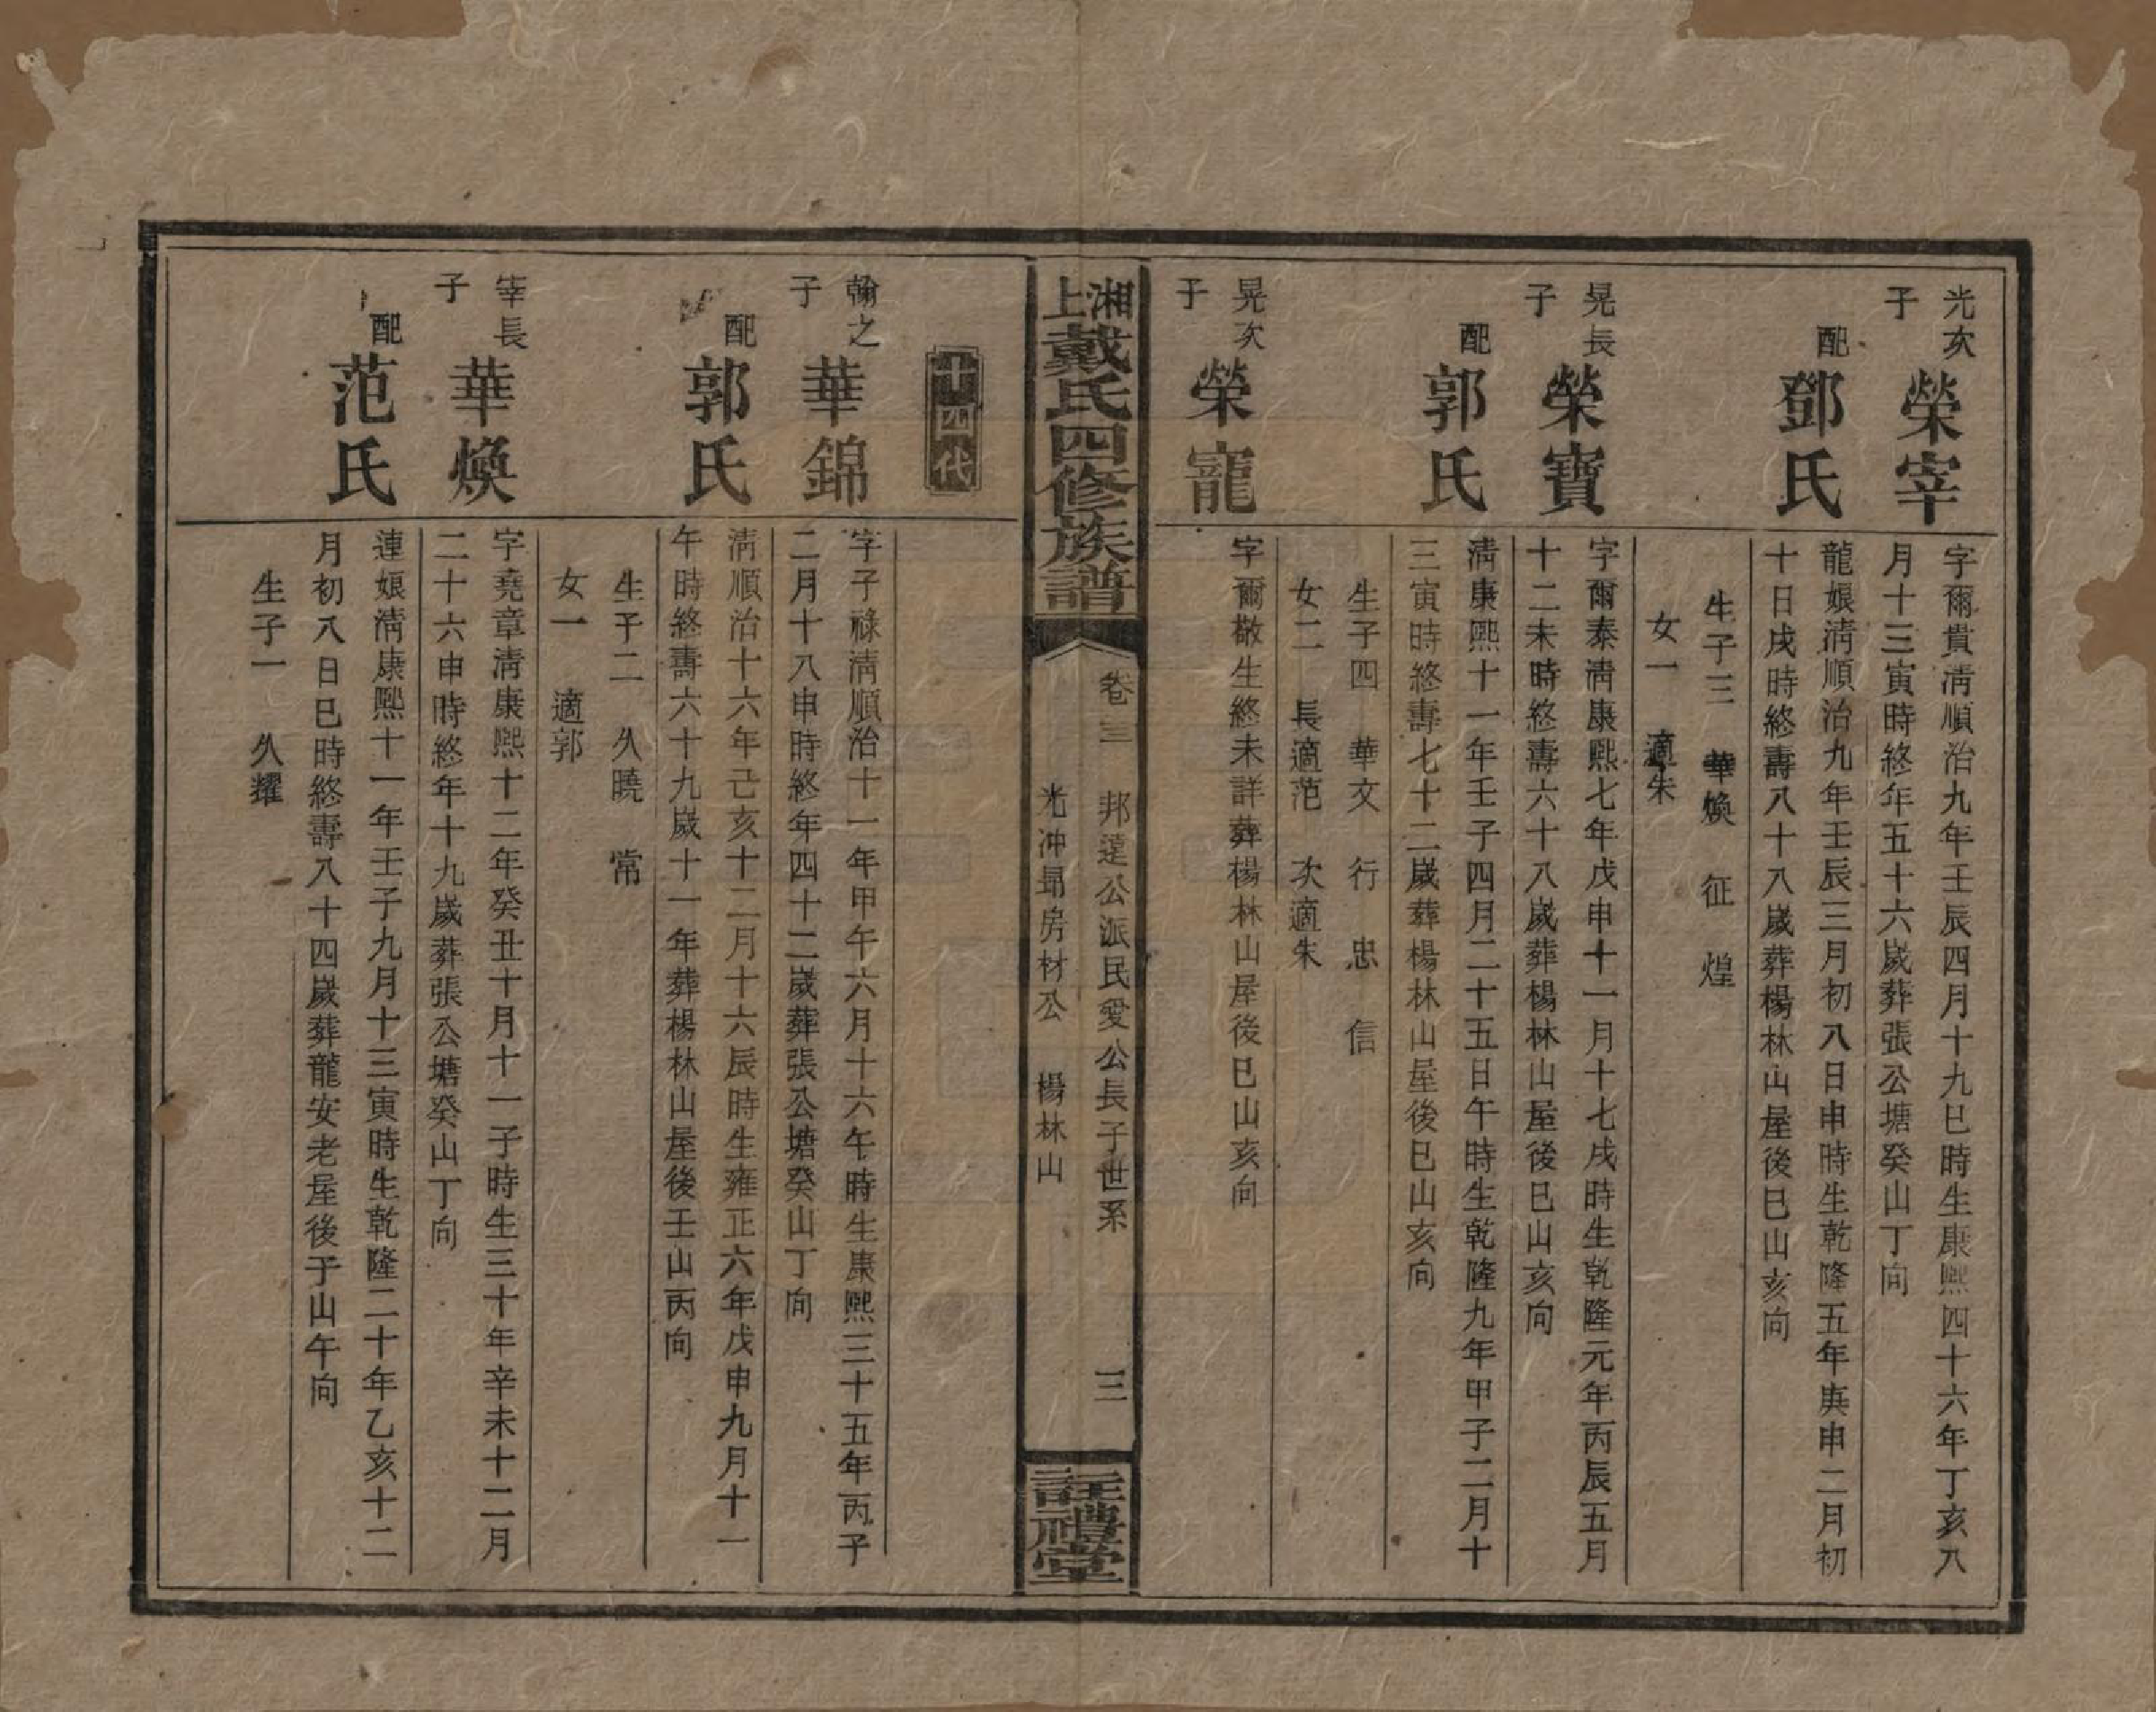 光次子
榮宰
字爾貴淸順治九年壬辰四月十九巳時生康熙四十六年丁亥八
月十三寅時終年五十六歲葬張公塘癸山丁向
配
鄧氏
龍娘淸順治九年壬辰三月初八日申時生乾隆五年庚申二月初
十日戌時終壽八十八歲葬楊林山屋後巳山亥向
生子三 華煥 征 煌
女一 適朱
晃長子
榮寶
字爾泰淸康熙七年戊申十一月十七戌時生乾隆元年丙辰五月
十二未時終壽六十八歲葬楊林山屋後巳山亥向
配
郭氏
淸康熙十一年壬子四月二十五日午時生乾隆九年甲子二月十
三寅時終壽七十二歲葬楊林山屋後巳山亥向
生子四 華文 行 忠 信
女二 長適范 次適朱
晃次子
榮寵
字爾敬生終未詳葬楊林山屋後巳山亥向
湘上戴氏四修族譜
卷三 邦達公派民愛公長子世系 三
光沖昻房材公 楊林山
註禮堂
十四代
翰之子
華錦
字子祿淸順治十一年甲午六月十六午時生康熙三十五年丙子
二月十八申時終年四十二歲葬張公塘癸山丁向
配
郭氏
淸順治十六年己亥十二月十六辰時生雍正六年戊申九月十一
午時終壽六十九歲十一年葬楊林山屋後壬山丙向
生子二 久曉 常
女一 適郭
宰長子
華煥
字堯章淸康熙十二年癸丑十月十一子時生三十年辛未十二月
二十六申時終年十九歲葬張公塘癸山丁向
配
范氏
連娘淸康熙十一年壬子九月十三寅時生乾隆二十年乙亥十二
月初八日巳時終壽八十四歲葬龍安老屋後子山午向
生子一 久耀